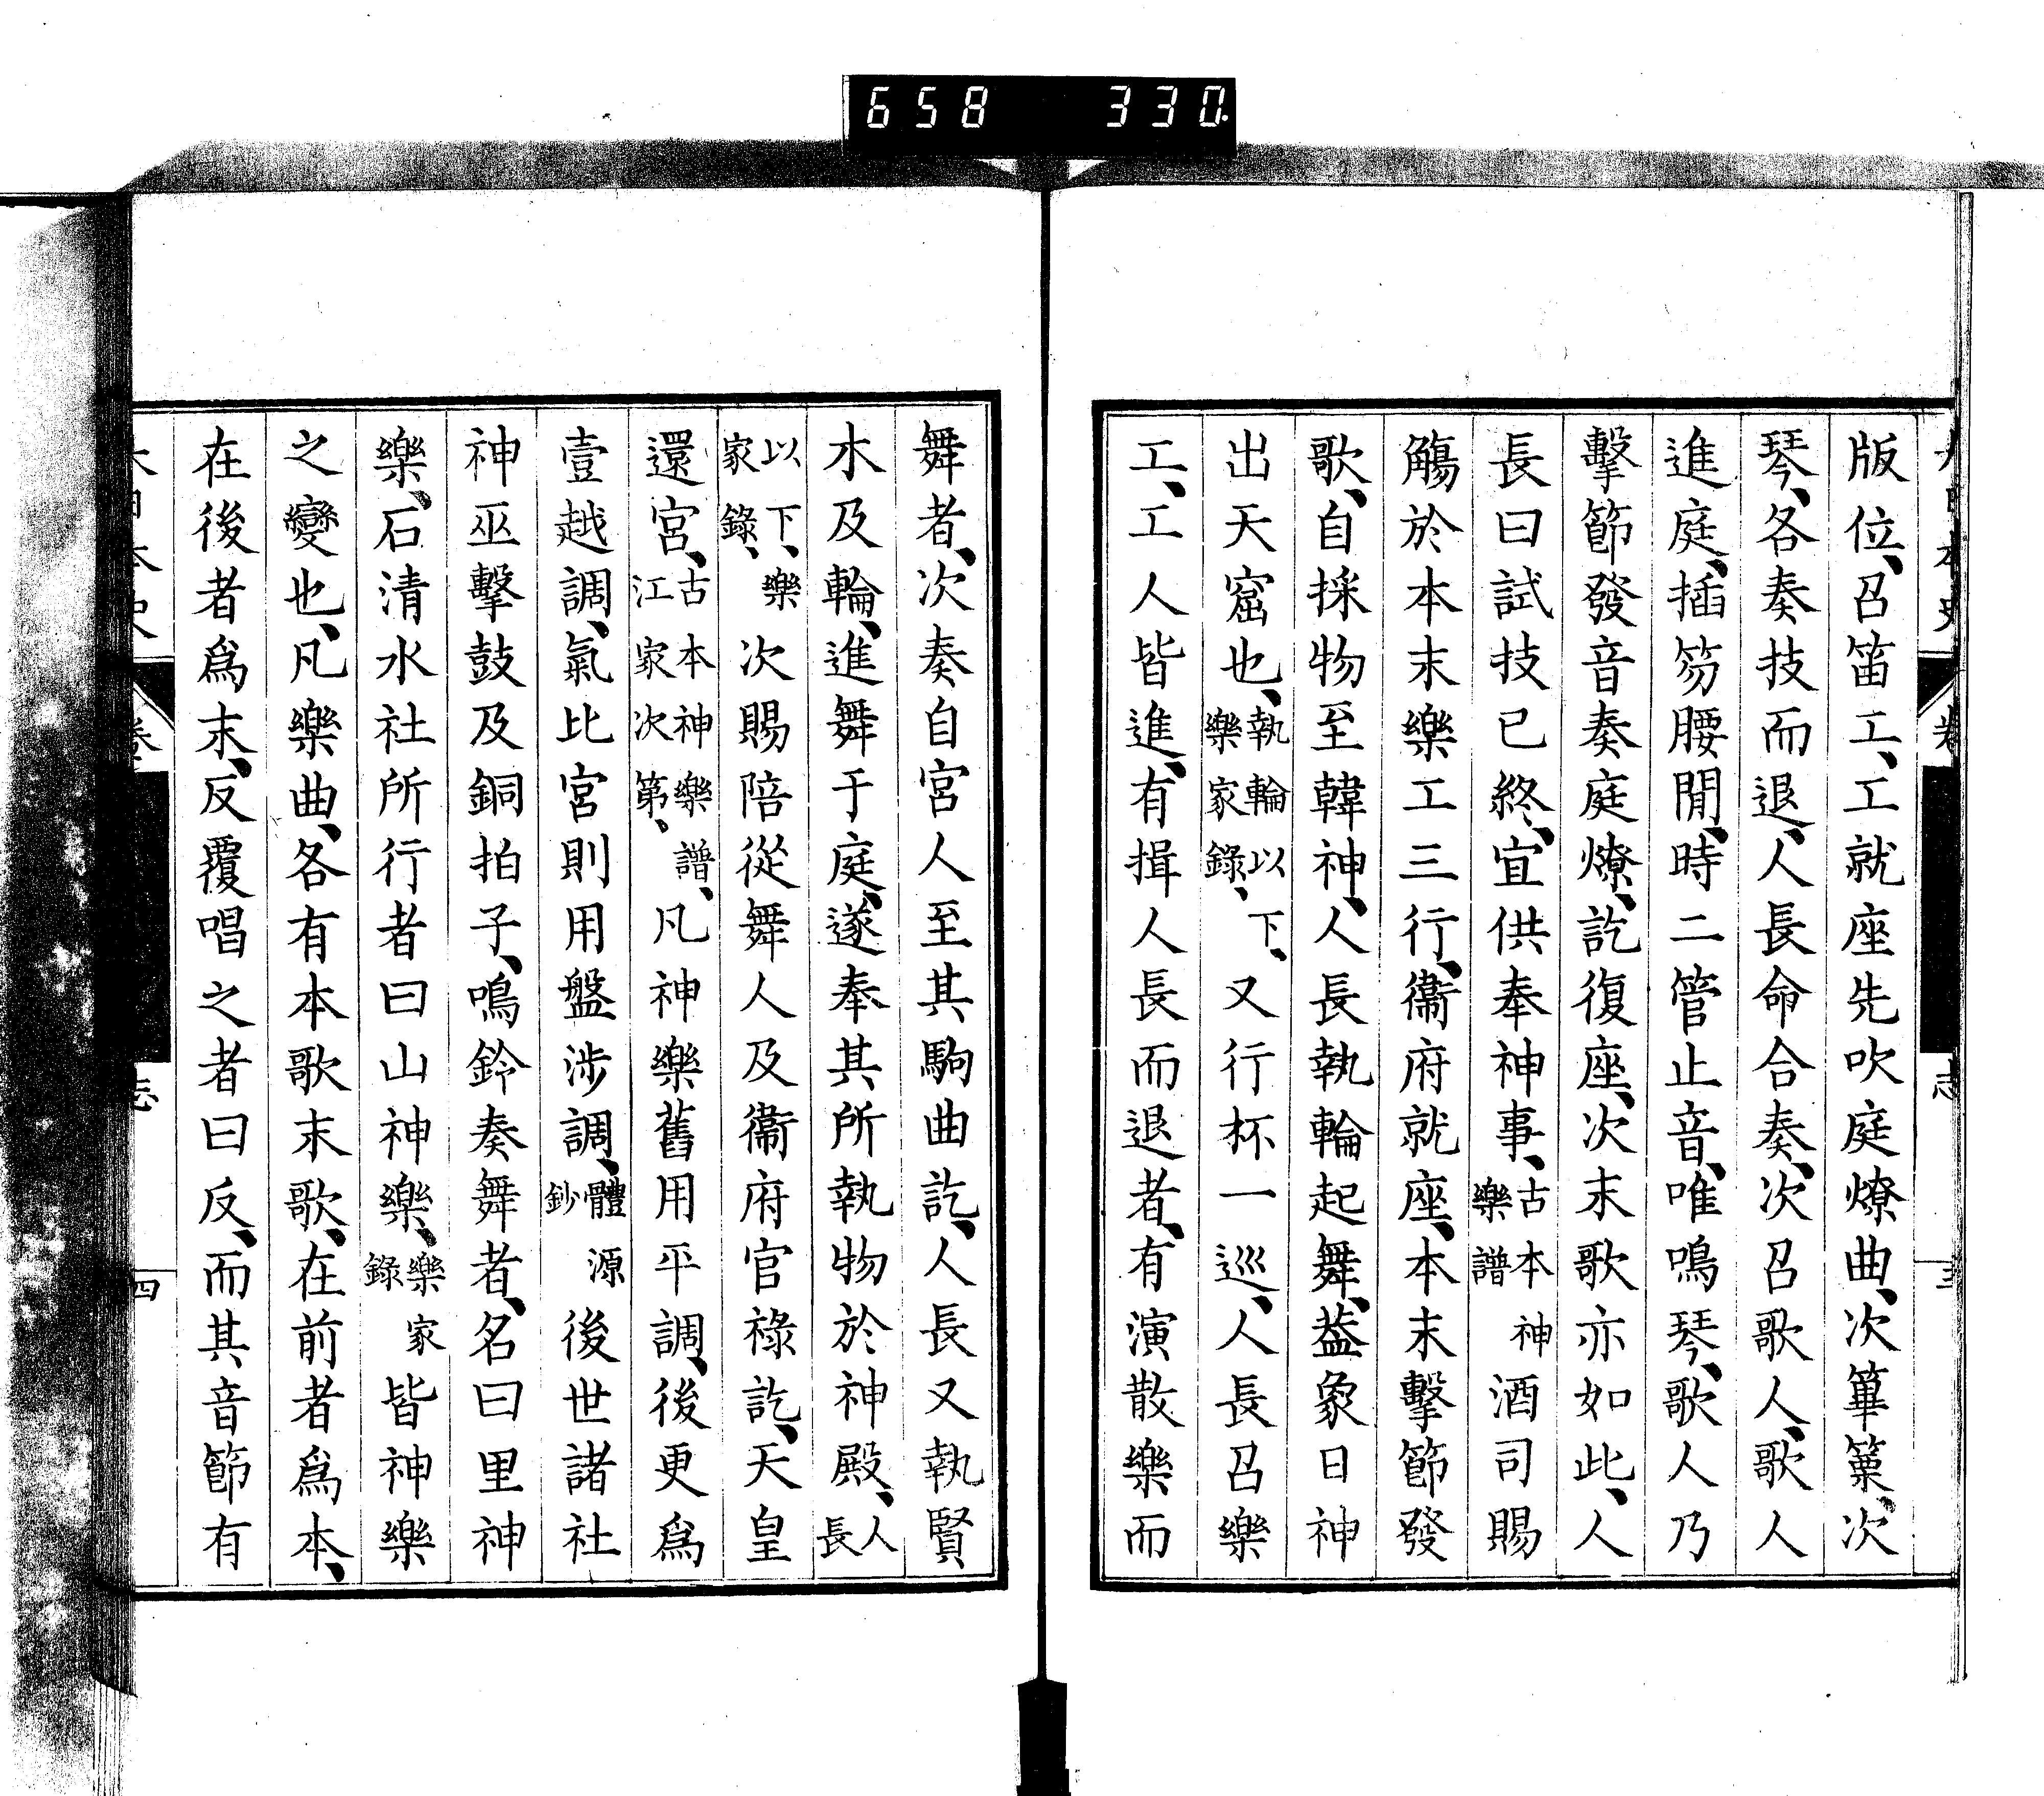 658 330
版位、召笛工、工就座先吹庭燎曲、次篳篥、次
琴、各奏技而退、人長命合奏、次召歌人、歌人
進庭、插笏腰間、時二管止音、唯鳴琴、歌人乃
擊節發音奏庭燎、訖復座、次末歌亦如此、人
長曰試技已終、宜供奉神事、古本神樂譜酒司賜
觴於本末樂工三行、衞府就座、本末擊節發
歌、自採物至韓神、人長執輪起舞、葢象日神
出天窟也、執輪以下、樂家錄、又行杯一巡、人長召樂
工、工人皆進、有揖人長而退者、有演散樂而
舞者、次奏自宮人至其駒曲訖、人長又執賢
木及輪、進舞于庭、遂奉其所執物於神殿、人長
以下、樂家錄、次賜陪從舞人及衞府官祿訖、天皇
還宮、古本神樂譜、江家次第、凡神樂舊用平調、後更爲
壹越調、氣比宮則用盤涉調、體源鈔後世諸社
神巫擊鼓及銅拍子、鳴鈴奏舞者、名曰里神
樂、石清水社所行者曰山神樂、樂家錄皆神樂
之變也、凡樂曲、各有本歌末歌、在前者爲本、
在後者爲末、反覆唱之者曰反、而其音節有